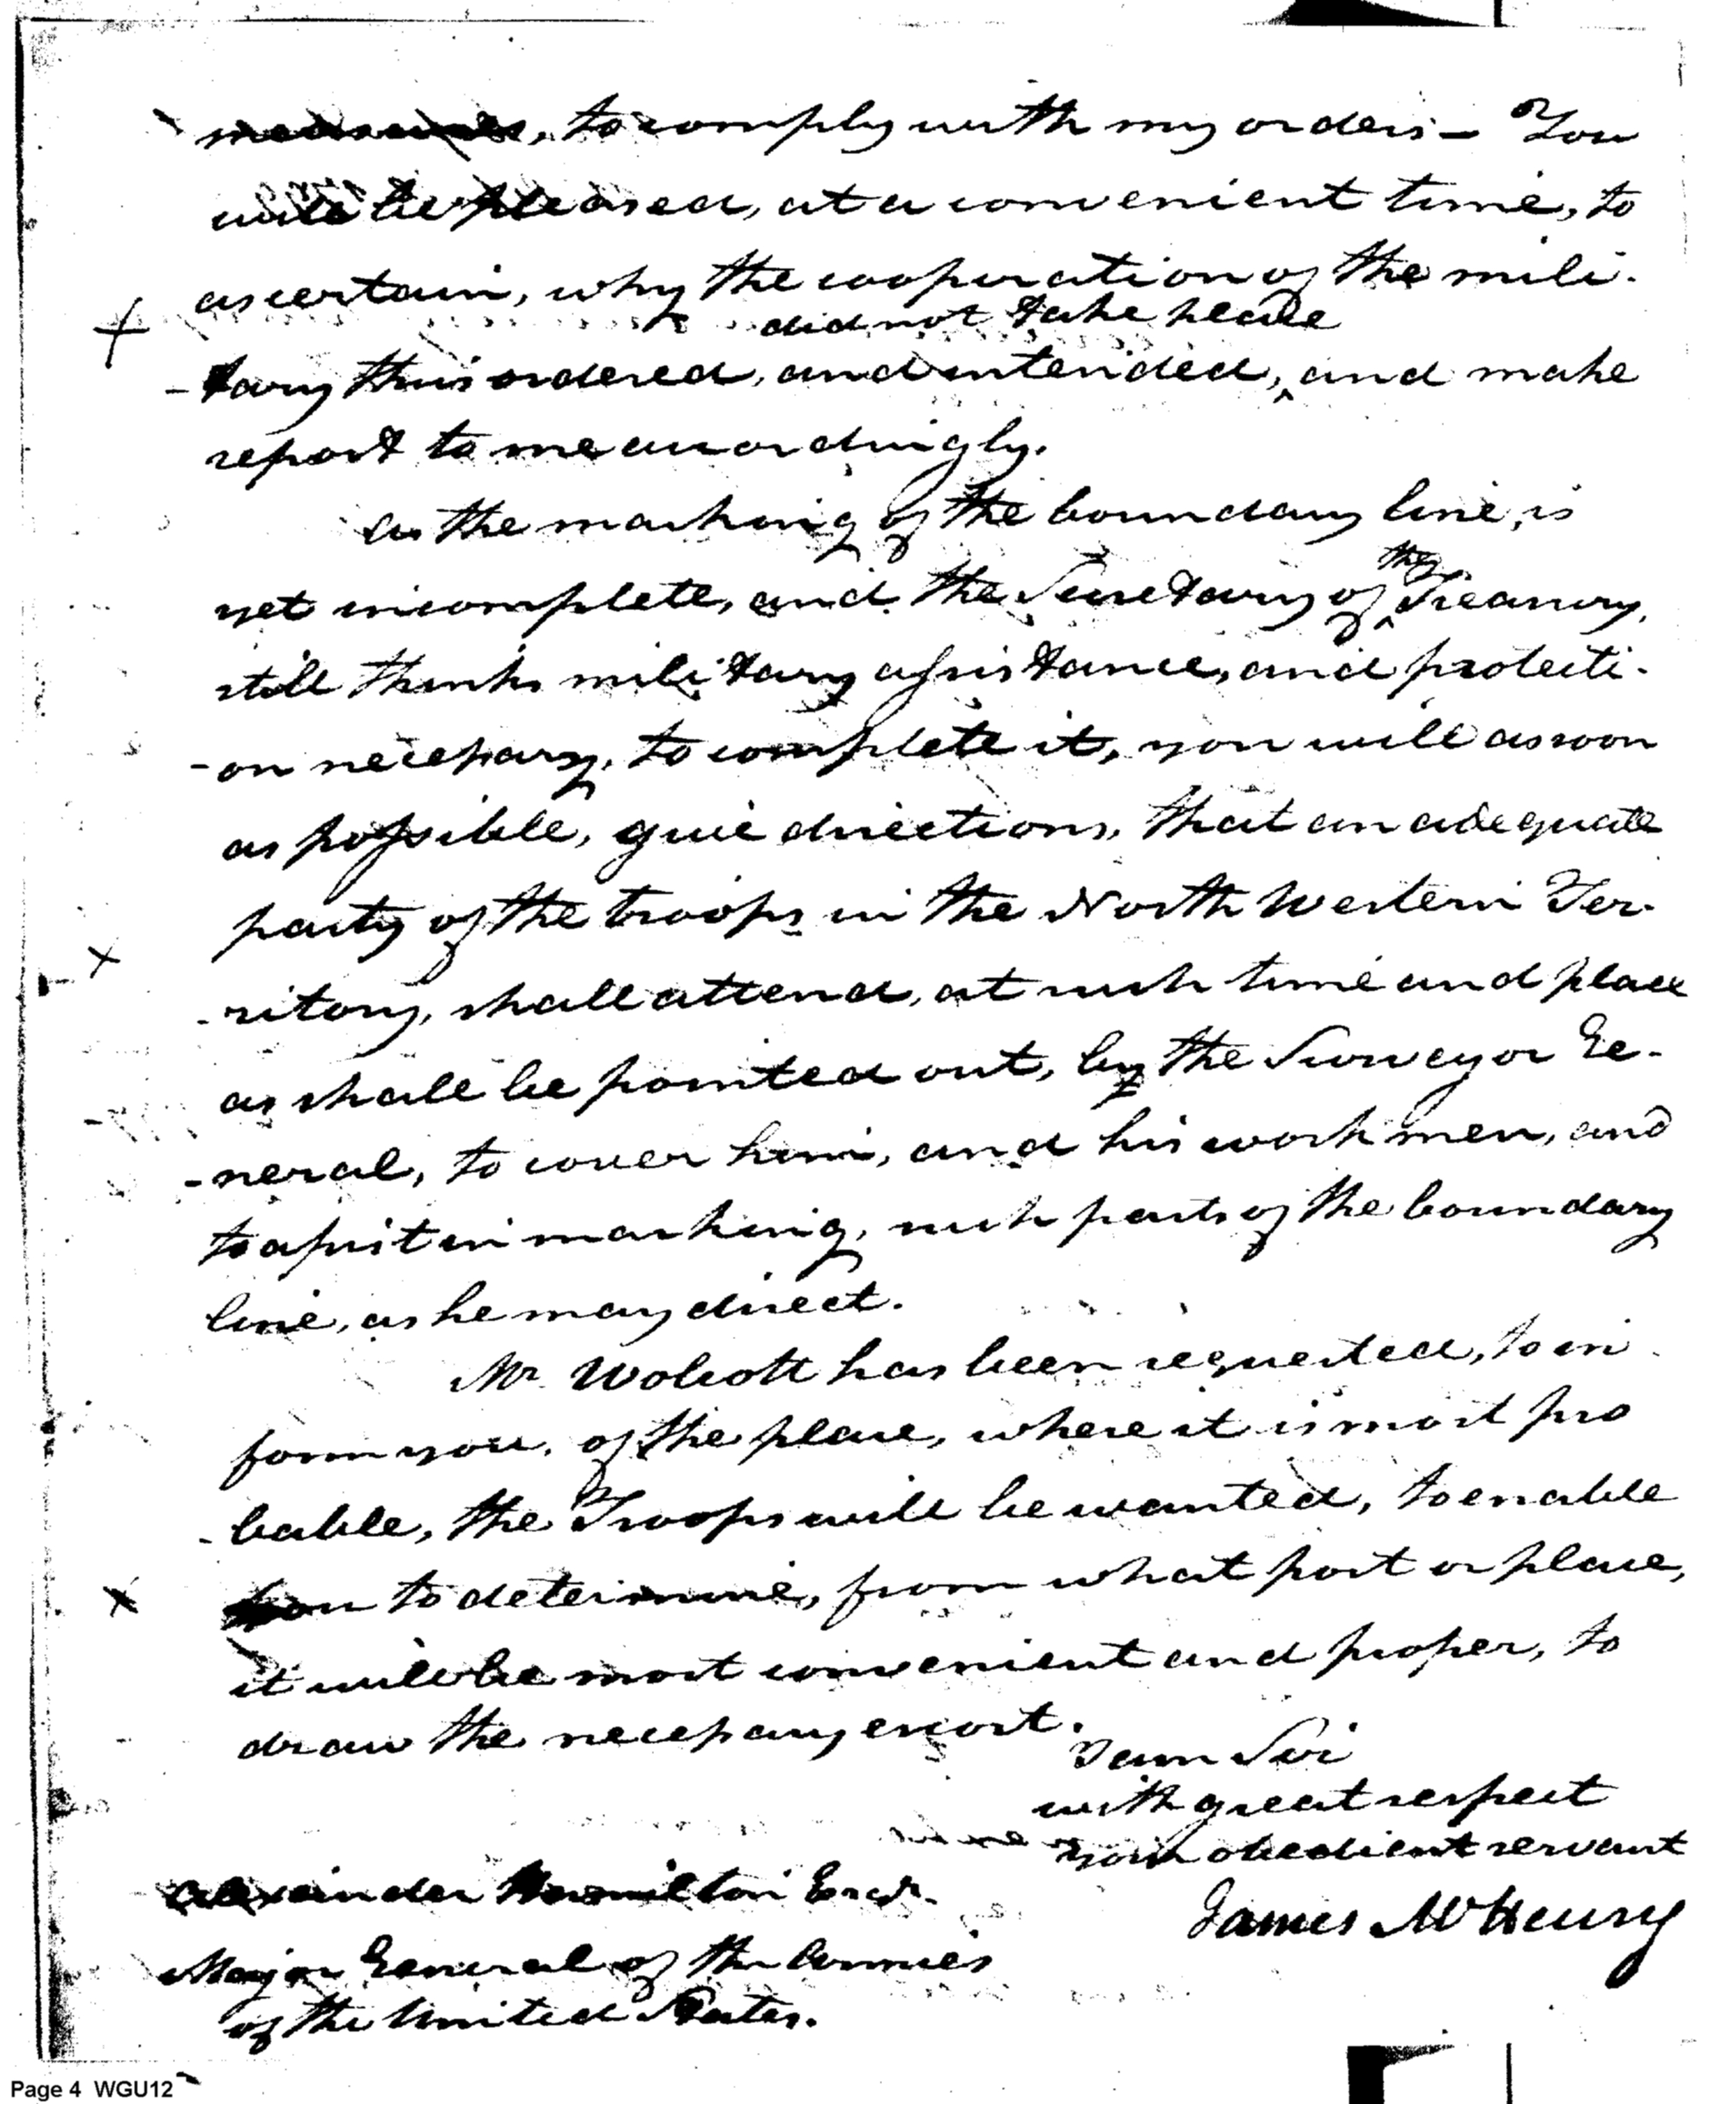 measures, to comply with my orders — You
will be pleased, at a convenient time, to
ascertain, why the cooperation of the mili-
did not take place
-tary thus ordered, and intended, ^ and make
report to me accordingly.
As the marking of the boundary line, is
the
yet incomplete, and the Secretary of ^ Treasury,
still thinks military assistance, and protecti-
-on necessary, to complete it, you will as soon
as possible, give directions, that an adequate
party of the troops in the North Western Ter-
-ritory, shall attend, at such time and place
as shall be pointed out, by the Surveyor Ge-
-neral, to cover him, and his workmen, and
to assist in marking, such parts of the boundary
line, as he may direct.
Mr. Wolcott has been requested, to in
form you, of the place, where it is most pro
-bable, the Troops will be wanted, to enable
you to determine, from what post or place,
it will be most convenient and proper, to
draw the necessary escort.
I am Sir
with great respect
your obedient servant
James McHenry
Alexander Hamilton Esqr.
Major General of the Armies
of the United States.
Page 4 WGU12